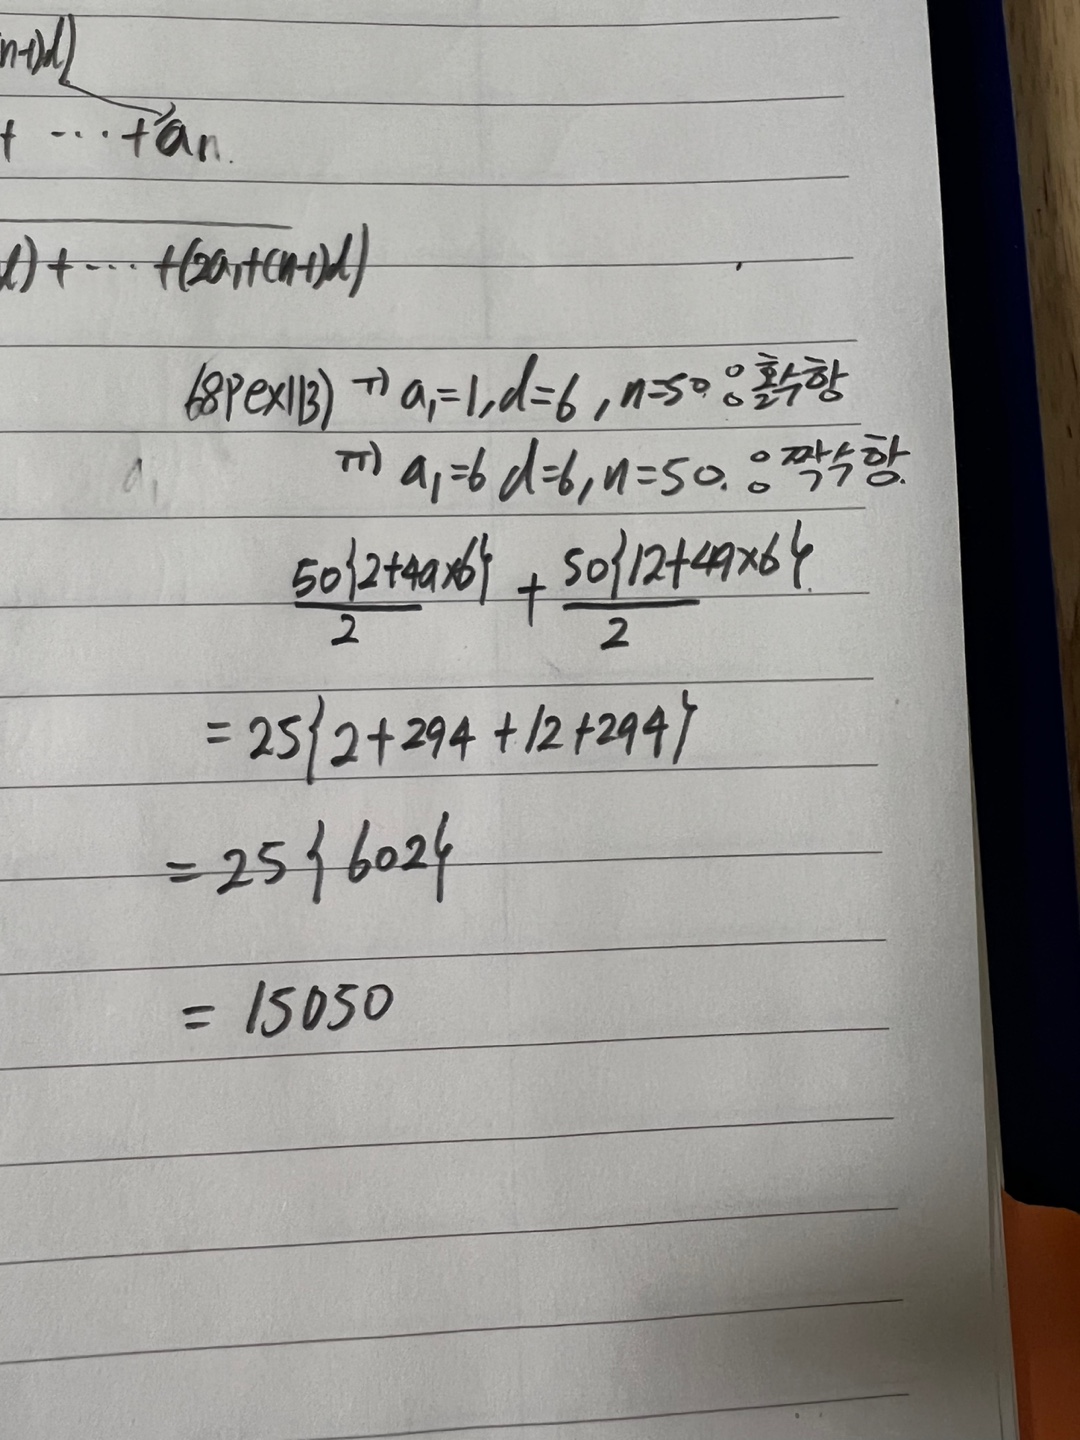 n-1)d)
+ ··· + an.
d) + ··· + (2a₁+(n-1)d)
68p ex113) ㅠ) a₁=1, d=6, n=50. : 홀수항
a₁
ㅠ) a₁=6 d=6, n=50. : 짝수항.
50{2+49×6}/2 + 50{12+49×6}/2
= 25{2+294+12+294}
= 25{602}
= 15050